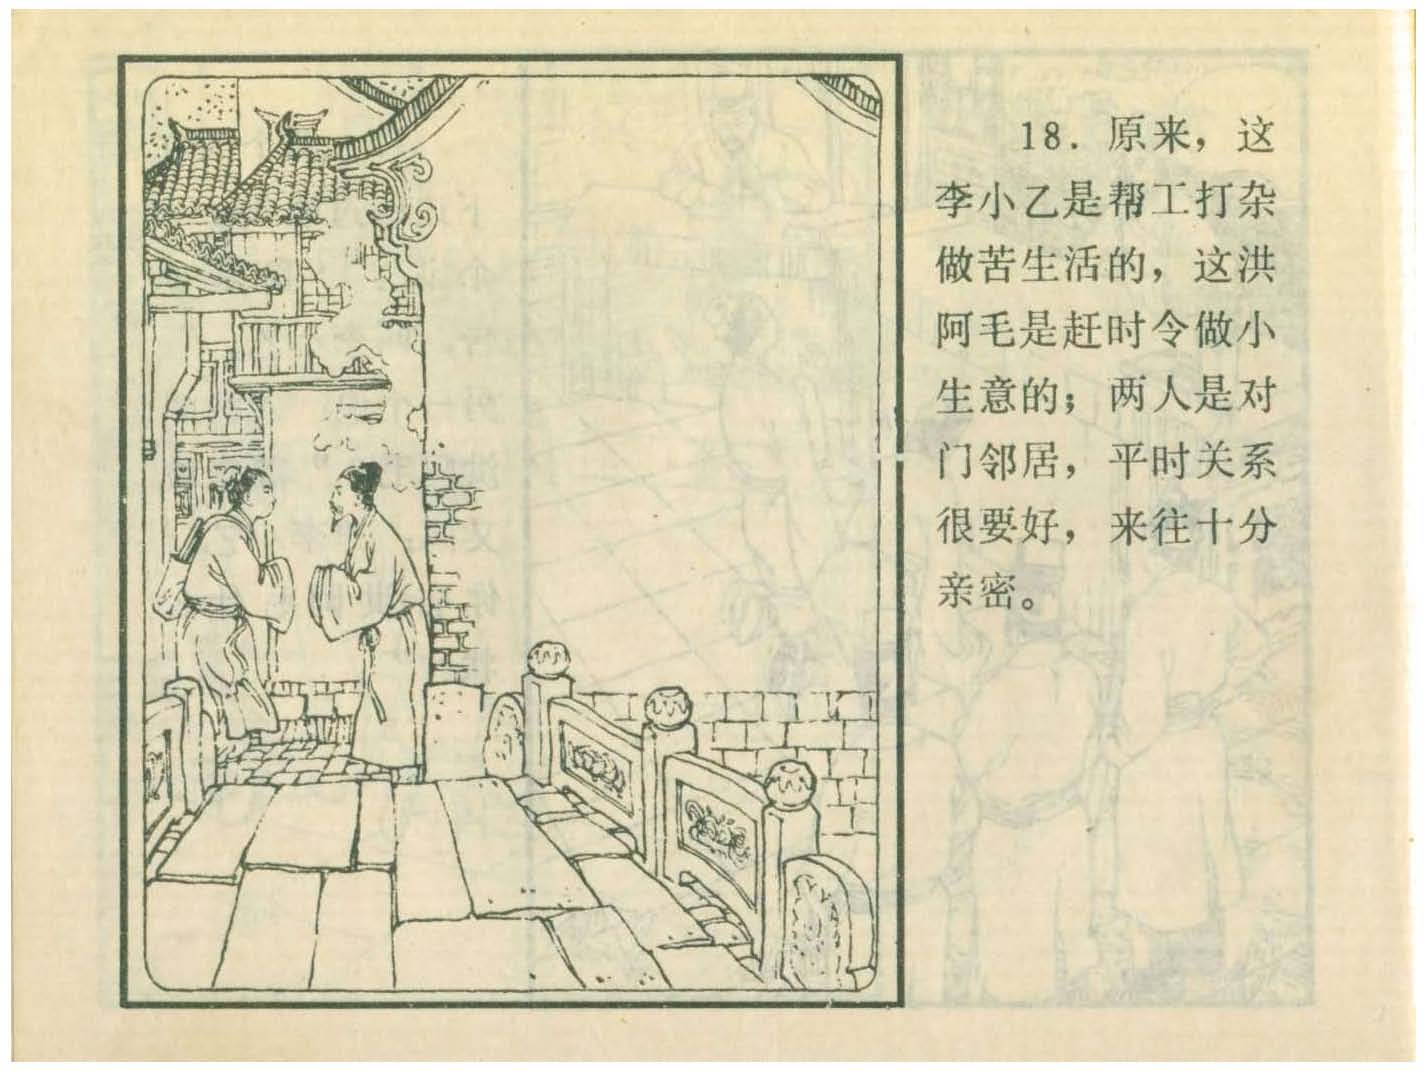 18. 原来，这
李小乙是帮工打杂
做苦生活的，这洪
阿毛是赶时令做小
生意的；两人是对
门邻居，平时关系
很要好，来往十分
亲密。